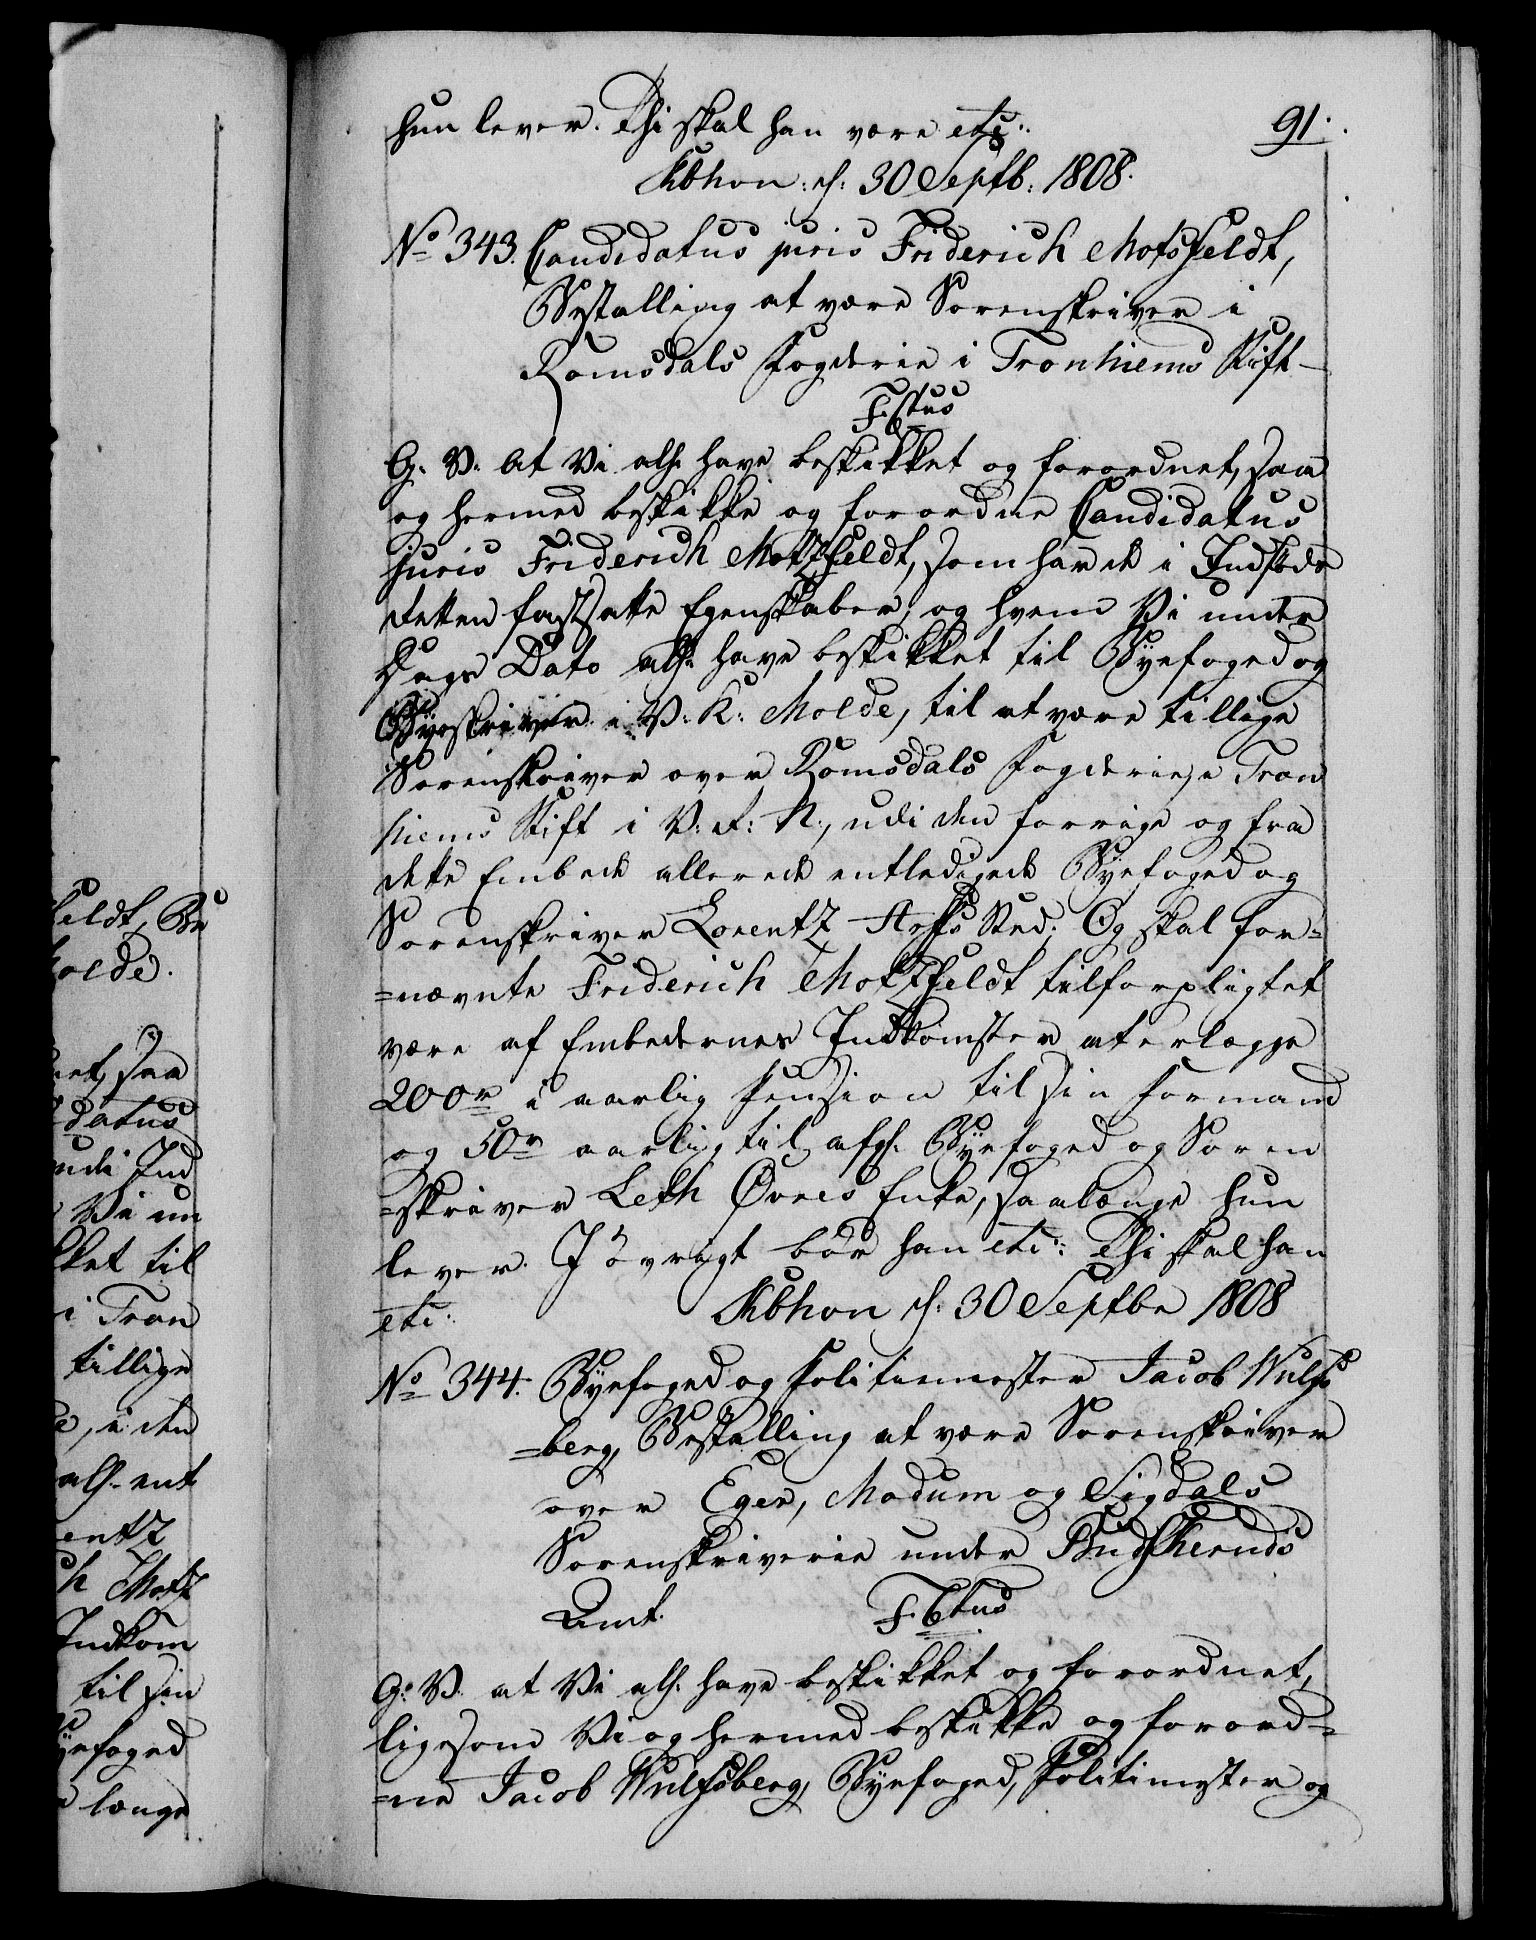 91.
hun lever. Thi skal han være etc:
Kbhvn: d: 30 Septb: 1808.
No 343. Candidatus juris Friderich Motsfeldt,
Bestalling at være Sorenskriver i
Romsdals Fogderie i Tronhiems Stift
F. VItus
G. V. At Vi alh. have beskikket og forordnet, saa
og hermed beskikke og forordne Candidatus
juris Friderich Motzfeldt, som har de i Indføds
Retten fastsatte Egenskaber, og hvem Vi under
Dags Dato alh. have beskikket til Byefoged og
Byeskriver i V: K: Molde, til at være tillige
Sorenskriver over Romsdals Fogderie, Tron
hiems Stift i V: R: N:, udi den forrige og fra
dette Embede allerede entledigede Byefoged og
Sorenskriver Lorentz Sted; Og skal for=
=nævnte Friderich Motzfeldt tilforpligtet
være af Embedernes Indkomster at erlægge
200r i aarlig Pension til sin Formand
og 50r aarlig til afg: Byefoged og Soren
=skriver Leth Øvres Enke, saalænge hun
lever. I øvrigt bør han etc: Thi skal han
etc. Kbhvn d: 30 Septbr 1808
No 344. Byefoged og Politiemester Jacob Wulfs
=berg, Bestalling at være Sorenskriver
over Eger, Modum og Sigdals
Sorenskriverie under Budskeruds
Amt.
F. VItus
G: V. at Vi alh. have beskikket og forordnet,
ligesom Vi og hermed beskikke og forord=
=ne Jacob Wulfsberg, Byefoged, Politimester og
feldt, By
Molde.
net, saa
datus
udi Ind
Vi un
kket til
i Tron
tillige
i den
alh. ent
entz
h Motz
Indkom
til sin
Byefoged
længe